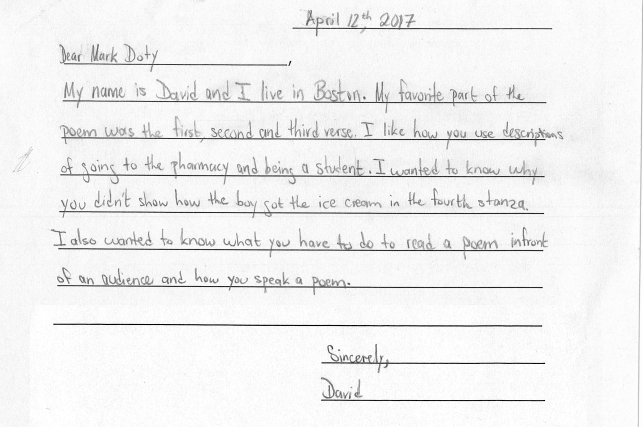 April 12th, 2017
Dear Mark Doty,
My name is David and I live in Boston. My favorite part of the
poem was the first, second and third verse. I like how you use descriptions
of going to the pharmacy and being a student. I wanted to know why
you didn't show how the boy got the ice cream in the fourth stanza.
I also wanted to know what you have to do to read a poem infront
of an audience and how you speak a poem.
Sincerely,
David